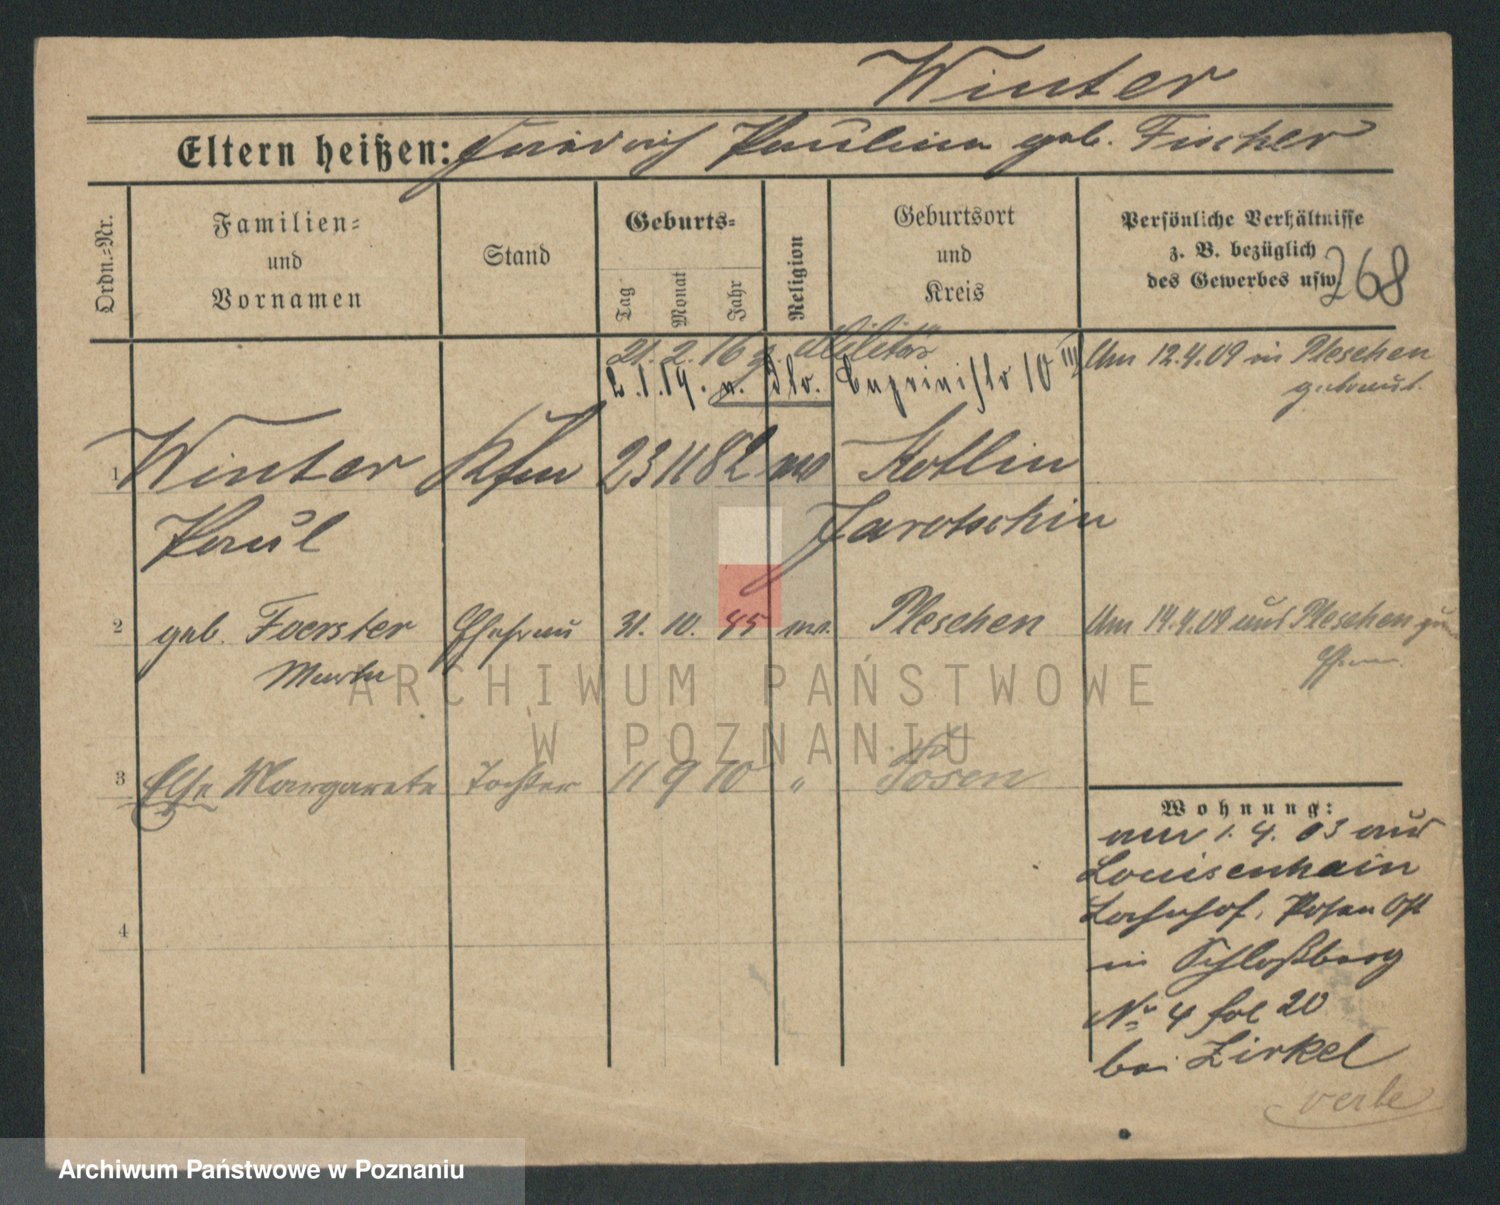 Winter
Eltern heißen: Friedrich Pauline geb. Fischer
Ordn.-Nr.
Familien- und Vornamen
Stand
Geburts-
Tag
Monat
Jahr
Religion
Geburtsort und Kreis
Persönliche Verhältnisse
z. B. bezüglich
des Gewerbes usw.
268
21. 2. 16 z. Militär
2.1.19. v. 10 III
Am 12.4.09 in Pleschen
getraut.
1 Winter Kfm 23 11 82 Kotlin
Paul Jarotschin
2 geb. Foerster Ehefrau 31. 10. 85 Pleschen Am 14.4.09 aus Pleschen
3 Else Margarete Tochter 11 9 10 " Posen
4
Wohnung:
am 1. 4. 03 aus
Louisenhain
Posen Ost
in Schloßberg
No 4 fol 20
bei Zirkel
ARCHIWUM PAŃSTWOWE
W POZNANIU
Archiwum Państwowe w Poznaniu